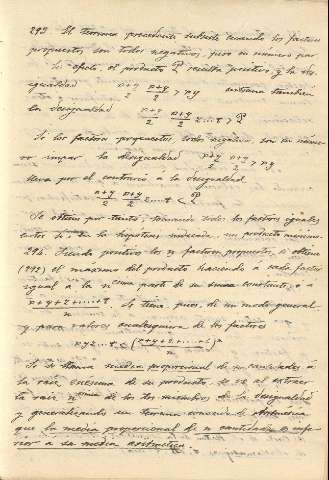 293. El teorema precedente subsiste cuando los factores
propuestos son todos negativos, pero en número par
En efecto el producto P resulta positivo y la des
igualdad x+y/2 x+y/2 > xy entraña también
la desigualdad
x+y/2 x+y/2 z...t > P
Si los factores propuestos todos negativos son en núme
ro impar la desigualdad x+y/2 x+y/2 > xy
lleva por el contrario á la desigualdad
x+y/2 x+y/2 z...t < P
Se obtiene por tanto, tomando todos los factores iguales
entre sí en la hipótesis indicada un producto mínimo.
294. Siendo positivos los n factores propuestos, se obtiene
(292) el máximo del producto haciendo á cada factor
igual á la n esima parte de su suma constante, ó á
x+y+z+...+t/n Se tiene pues, de un modo general
y para valores cualesquiera de los factores
xyz...t < (x+y+z+...+t/n)^n
Si se llama media proporcional de n cantidades á
la raíz enesima de su producto, se ve al extraer
la raíz n esima de los dos miembros de la desigualdad
y generalizando un teorema conocido de Aritmética
que la media proporcional de n cantidades es infe
rior á su media aritmética